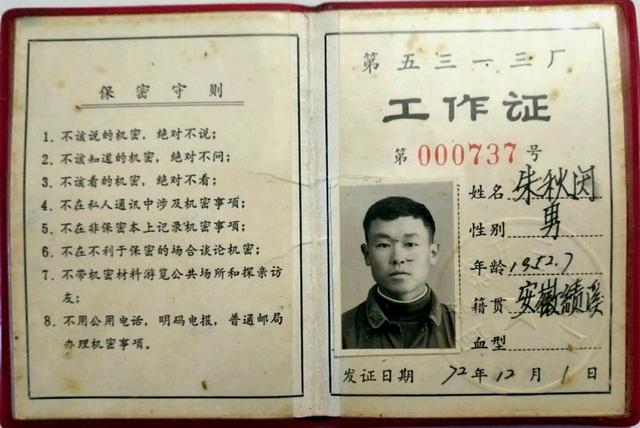 保密守则
1. 不该说的机密，绝对不说；
2. 不该知道的机密，绝对不问；
3. 不该看的机密，绝对不看；
4. 不在私人通讯中涉及机密事项；
5. 不在非保密本上记录机密事项；
6. 不在不利于保密的场合谈论机密；
7. 不带机密材料游览公共场所和探亲访
友；
8. 不用公用电话，明码电报，普通邮局
办理机密事项。
第五三一三厂
工作证
第 000737 号
姓名 朱秋闵
性别 男
年龄 1952.7
籍贯 安徽绩溪
血型
发证日期 72年12月1日